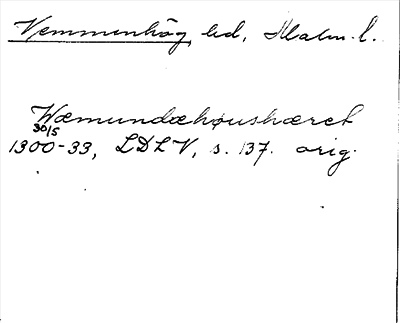 Vemmenhög hd, Malm. l.
Wæmundæhøushæret
30/5
1300-33, LDLV, s. 137. orig.